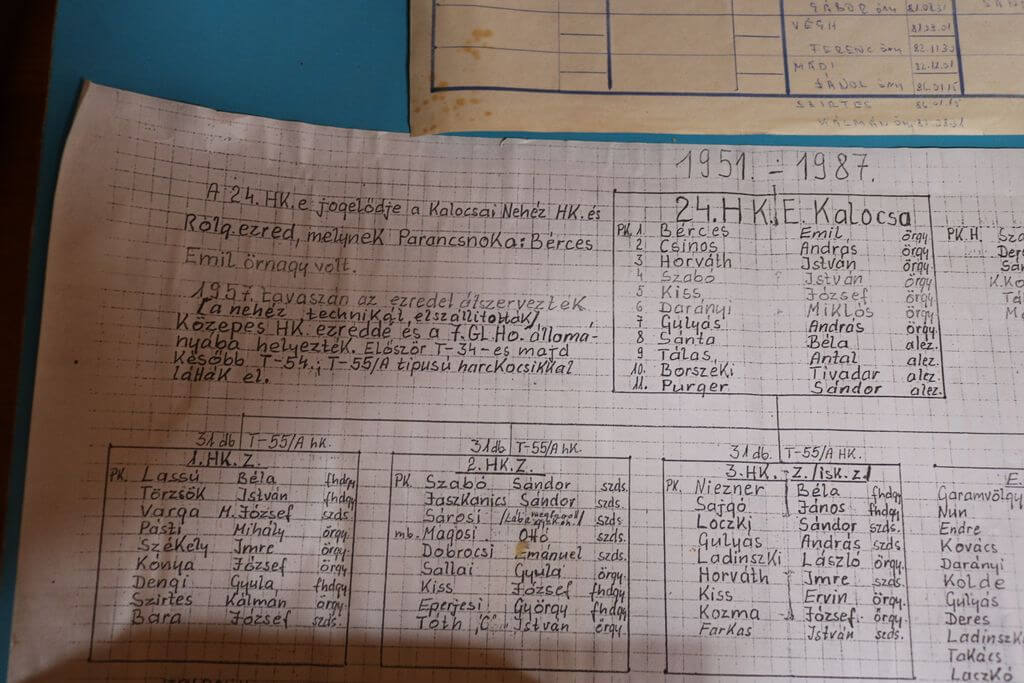 GÁBOR őrn 81.08.31
VÉGH
FERENC őrn 82.11.30
MÁDI 82.12.01
SZIRTES
KÁLMÁN
1951. ÷ 1987.
A 24. HK.e jogelődje a Kalocsai Nehéz HK. és
Rölg.ezred, melynek Parancsnoka: Bérces
Emil őrnagy volt.
1957. tavaszán az ezredet átszervezték
/a nehéz technikát, elszállították/
Közepes HK. ezreddé és a 7. GL. Ho. állomá-
nyába helyezték. Először T-34-es majd
Később T-54.; T-55/A tipusú harckocsikkal
látták el.
24. HK. E. Kalocsa
PK. 1. Bérces Emil, őrgy
2 Csinos András őrgy
3 Horváth István őrgy
4 Szabó ? István őrgy
5 Kiss József őrgy
6 Darányi Miklós őrgy
7 Gulyás András őrgy.
8 Sánta Béla alez.
9 Tálas, Antal alez.
10. Borszéki Tivadar alez.
11. Purger Sándor alez.
PK.H.
31 db T-55/A hk.
1. HK. Z.
PK. Lassú Béla fhdgy
Törzsök István fhdgy.
Varga H. József szds.
Pászti Mihály őrgy.
Székely Imre őrgy.
Kónya József őrgy
Dengi Gyula, fhdgy
Szirtes Kálmán őrgy.
Bara József szds.
31 db T-55/A hk.
2. HK. Z.
PK. Szabó Sándor szds.
Jaszkanics Sándor szds.
Sárosi szds.
mb. Magosi Ottó szds.
Dobrocsi Emánuel szds.
Sallai Gyula őrgy.
Kiss József fhdgy
Eperjesi György fhdgy
Tóth "C" István őrgy.
31 db. T-55/A HK.
3. HK. Z. /isk. z/
PK. Niezner Béla fhdgy
Sajgó János fhdgy
Loczki Sándor szds.
Gulyás András szds.
Ladinszki László őrgy.
Horváth Imre szds.
Kiss Ervin őrgy.
Kozma József. őrgy.
Farkas István szds.
E.
Garamvölgy
Nun
Endre
Kovács
Darányi
Kolde
Gulyás
Deres
Ladinszk
Takács
Laczkó